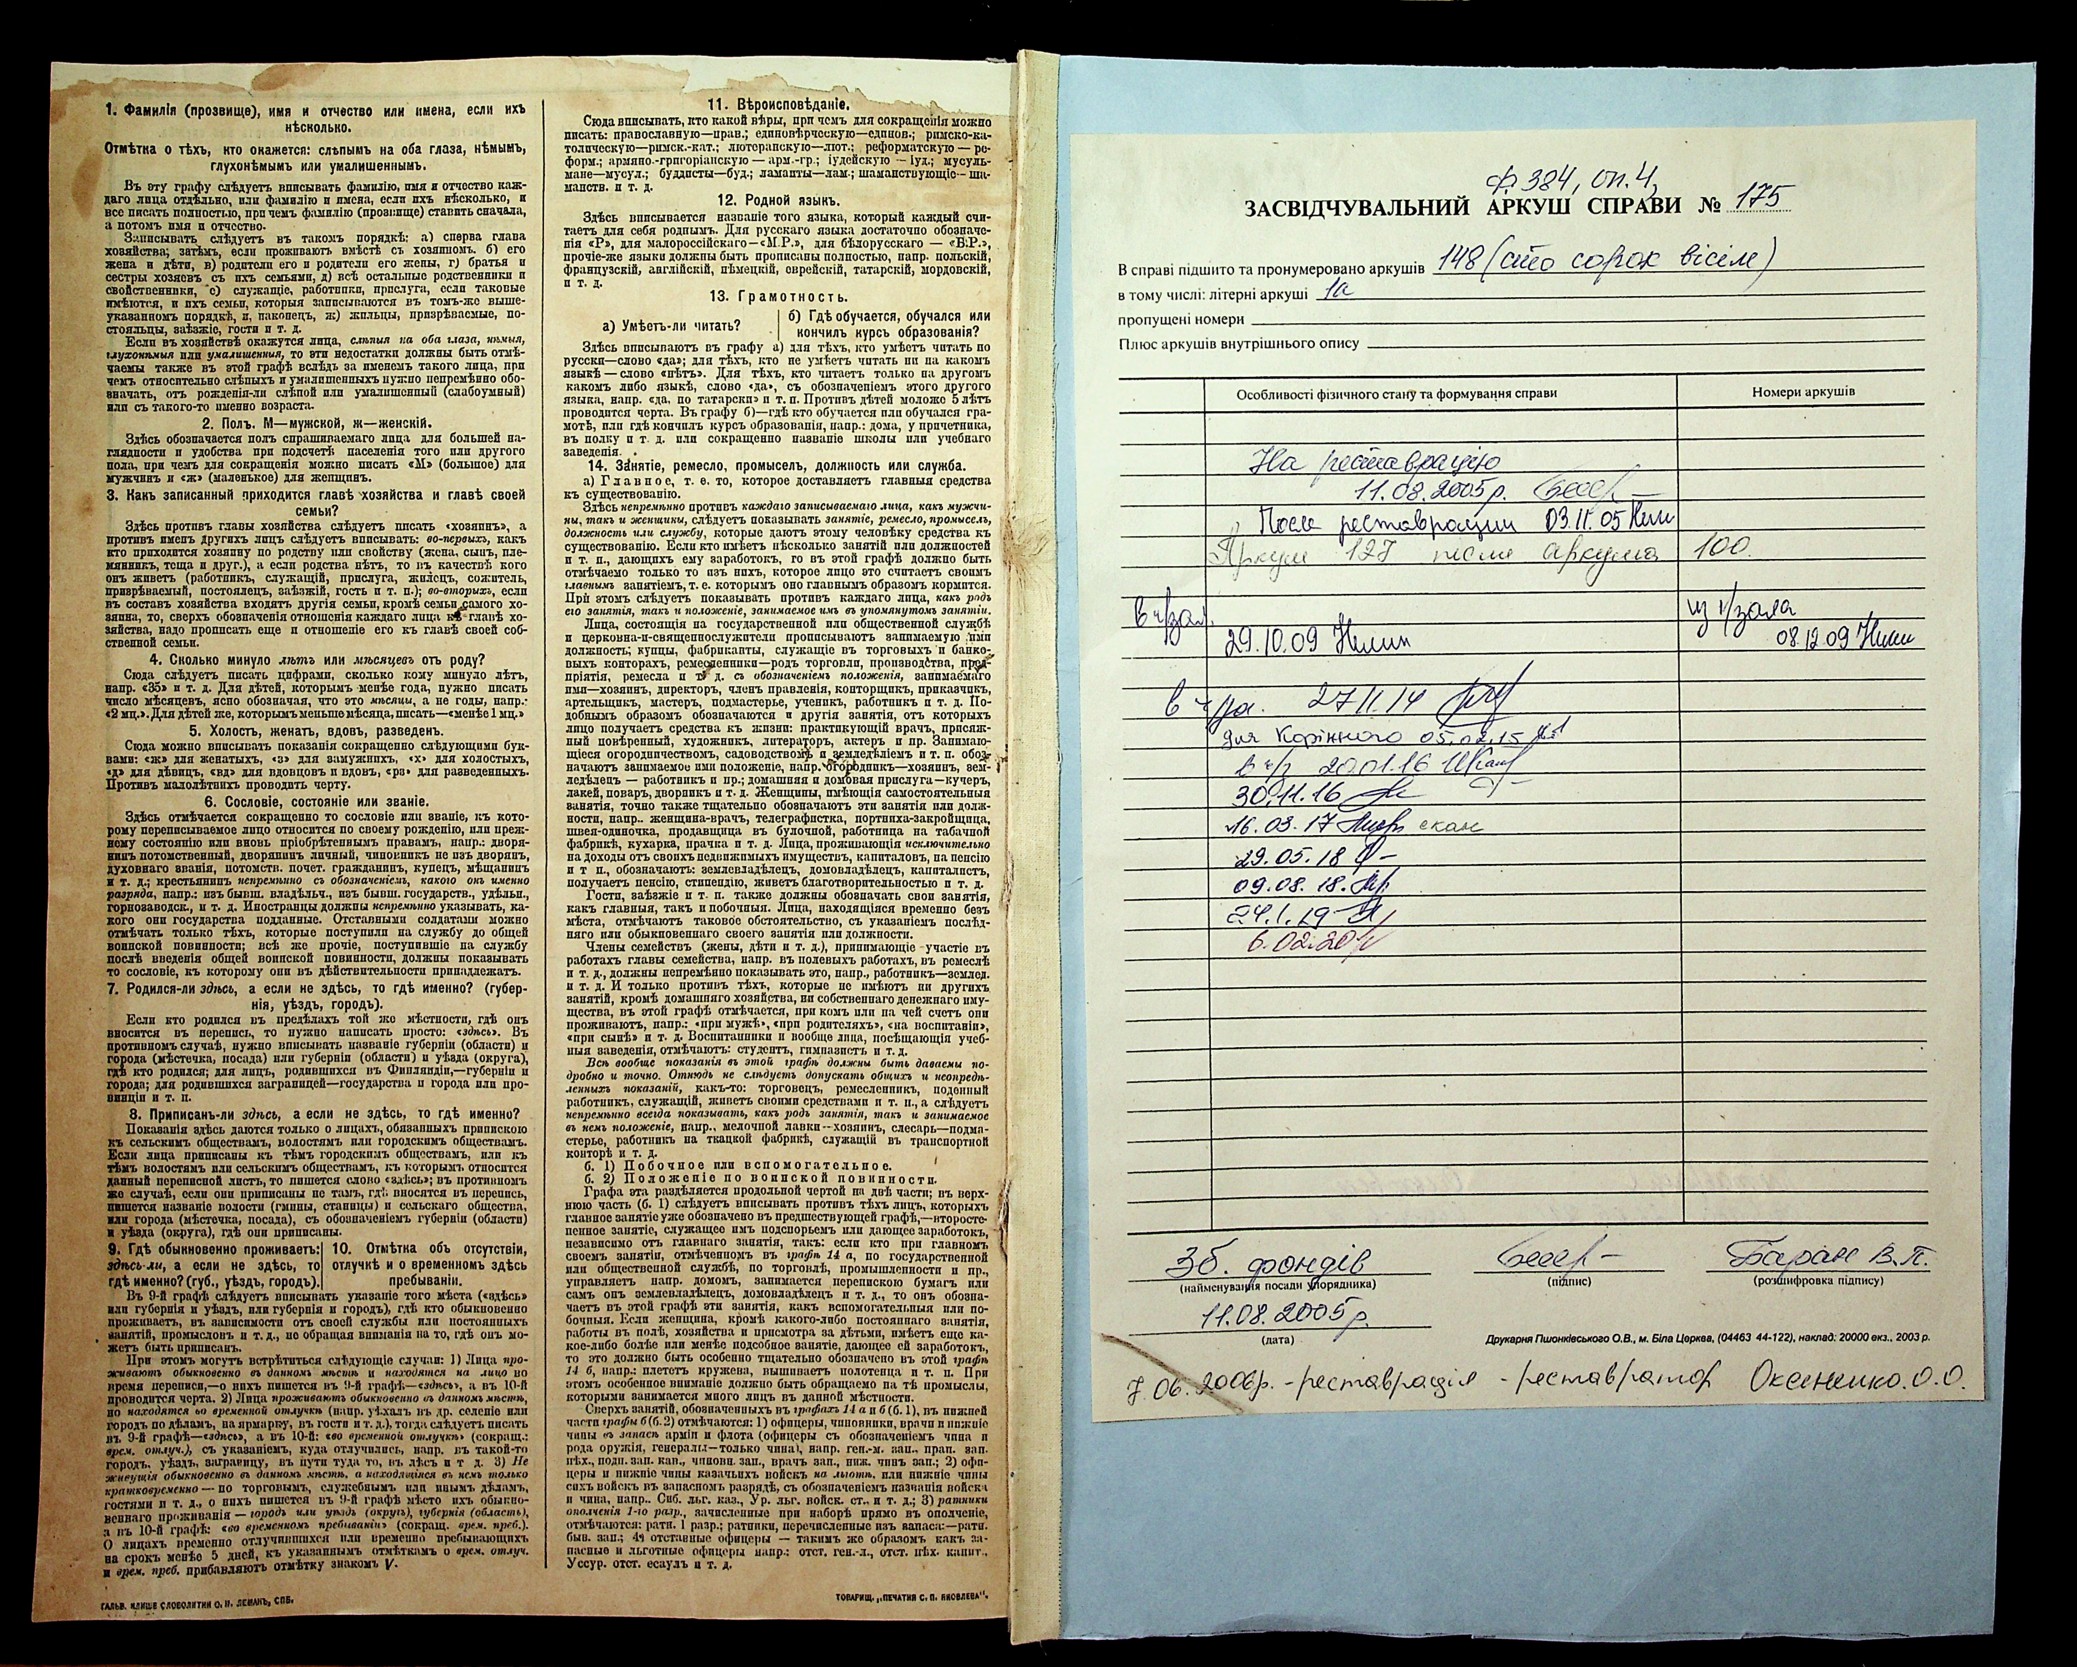 1. Фамилія (прозвище), имя и отчество или имена, если ихъ
нѣсколько.
Отмѣтка о тѣхъ, кто окажется: слѣпымъ на оба глаза, нѣмымъ,
глухонѣмымъ или умалишеннымъ.
Въ эту графу слѣдуетъ вписывать фамилію, имя и отчество каж-
даго лица отдѣльно, или фамилію и имена, если ихъ нѣсколько, и
все писать полностью, при чемъ фамилію (прозвище) ставить сначала,
а потомъ имя и отчество.
Записывать слѣдуетъ въ такомъ порядкѣ: а) сперва глава
хозяйства; затѣмъ, если проживаютъ вмѣстѣ съ хозяиномъ. б) его
жена и дѣти, в) родители его и родители его жены, г) братья и
сестры хозяевъ съ ихъ семьями, д) всѣ остальные родственники и
свойственники, е) служащіе, работники, прислуга, если таковые
имѣются, и ихъ семьи, которыя записываются въ томъ-же выше-
указанномъ порядкѣ, и, наконецъ, ж) жильцы, призрѣваемые, по-
стояльцы, заѣзжіе, гости и т. д.
Если въ хозяйствѣ окажутся лица, слѣпыя на оба глаза, нѣмыя,
глухонѣмыя или умалишенныя, то эти недостатки должны быть отмѣ-
чаемы также въ этой графѣ вслѣдъ за именемъ такого лица, при
чемъ относительно слѣпыхъ и умалишенныхъ нужно непремѣнно обо-
значать, отъ рожденія-ли слѣпой или умалишенный (слабоумный)
или съ такого-то именно возраста.
2. Полъ. М—мужской, ж—женскій.
Здѣсь обозначается полъ спрашиваемаго лица для большей на-
глядности и удобства при подсчетѣ населенія того или другого
пола, при чемъ для сокращенія можно писать «М» (большое) для
мужчинъ и «ж» (маленькое) для женщинъ.
3. Какъ записанный приходится главѣ хозяйства и главѣ своей
семьи?
Здѣсь противъ главы хозяйства слѣдуетъ писать «хозяинъ», а
противъ именъ другихъ лицъ слѣдуетъ вписывать: во-первыхъ, какъ
кто приходится хозяину по родству или свойству (жена, сынъ, пле-
мянникъ, теща и друг.), а если родства нѣтъ, то въ качествѣ кого
онъ живетъ (работникъ, служащій, прислуга, жилецъ, сожитель,
призрѣваемый, постоялецъ, заѣзжій, гость и т. п.); во-вторыхъ, если
въ составъ хозяйства входятъ другія семьи, кромѣ семьи самого хо-
зяина, то, сверхъ обозначенія отношенія каждаго лица къ главѣ хо-
зяйства, надо прописать еще и отношеніе его къ главѣ своей соб-
ственной семьи.
4. Сколько минуло лѣтъ или мѣсяцевъ отъ роду?
Сюда слѣдуетъ писать цифрами, сколько кому минуло лѣтъ,
напр. «35» и т. д. Для дѣтей, которымъ менѣе года, нужно писать
число мѣсяцевъ, ясно обозначая, что это мѣсяцы, а не годы, напр.:
«2 мц.». Для дѣтей же, которымъ меньше мѣсяца, писать—«менѣе 1 мц.»
5. Холостъ, женатъ, вдовъ, разведенъ.
Сюда можно вписывать показанія сокращенно слѣдующими бук-
вами: «ж» для женатыхъ, «з» для замужнихъ, «х» для холостыхъ,
«д» для дѣвицъ, «вд» для вдовцовъ и вдовъ, «рз» для разведенныхъ.
Противъ малолѣтнихъ проводить черту.
6. Сословіе, состояніе или званіе.
Здѣсь отмѣчается сокращенно то сословіе или званіе, къ кото-
рому переписываемое лицо относится по своему рожденію, или преж-
нему состоянію или вновь пріобрѣтеннымъ правамъ, напр.: дворя-
нинъ потомственный, дворянинъ личный, чиновникъ не изъ дворянъ,
духовнаго званія, потомств. почет. гражданинъ, купецъ, мѣщанинъ
и т. д.; крестьянинъ непремѣнно съ обозначеніемъ, какого онъ именно
разряда, напр.: изъ бывш. владѣльч., изъ бывш. государств., удѣльн.,
горнозаводск., и т. д. Иностранцы должны непремѣнно указывать, ка-
кого они государства подданные. Отставными солдатами можно
отмѣчать только тѣхъ, которые поступили на службу до общей
воинской повинности; всѣ же прочіе, поступившіе на службу
послѣ введенія общей воинской повинности, должны показывать
то сословіе, къ которому они въ дѣйствительности принадлежатъ.
7. Родился-ли здѣсь, а если не здѣсь, то гдѣ именно? (губер-
нія, уѣздъ, городъ).
Если кто родился въ предѣлахъ той же мѣстности, гдѣ онъ
вносится въ перепись, то нужно написать просто: «здѣсь». Въ
противномъ случаѣ, нужно вписывать названіе губерніи (области) и
города (мѣстечка, посада) или губерніи (области) и уѣзда (округа),
гдѣ кто родился; для лицъ, родившихся въ Финляндіи,—губерніи и
города; для родившихся заграницей—государства и города или про-
винціи и т. п.
8. Приписанъ-ли здѣсь, а если не здѣсь, то гдѣ именно?
Показанія здѣсь даются только о лицахъ, обязанныхъ припискою
къ сельскимъ обществамъ, волостямъ или городскимъ обществамъ.
Если лица приписаны къ тѣмъ городскимъ обществамъ, или къ
тѣмъ волостямъ или сельскимъ обществамъ, къ которымъ относится
данный переписной листъ, то пишется слово «здѣсь»; въ противномъ
же случаѣ, если они приписаны не тамъ, гдѣ вносятся въ перепись,
пишется названіе волости (гмины, станицы) и сельскаго общества,
или города (мѣстечка, посада), съ обозначеніемъ губерніи (области)
и уѣзда (округа), гдѣ они приписаны.
9. Гдѣ обыкновенно проживаетъ:
здѣсь-ли, а если не здѣсь, то
гдѣ именно? (губ., уѣздъ, городъ).
10. Отмѣтка объ отсутствіи,
отлучкѣ и о временномъ здѣсь
пребываніи.
Въ 9-й графѣ слѣдуетъ вписывать указаніе того мѣста («здѣсь»
или губернія и уѣздъ, или губернія и городъ), гдѣ кто обыкновенно
проживаетъ, въ зависимости отъ своей службы или постоянныхъ
занятій, промысловъ и т. д., не обращая вниманія на то, гдѣ онъ мо-
жетъ быть приписанъ.
При этомъ могутъ встрѣтиться слѣдующіе случаи: 1) Лица про-
живаютъ обыкновенно въ данномъ мѣстѣ и находятся на лицо во
время переписи,—о нихъ пишется въ 9-й графѣ—«здѣсь», а въ 10-й
проводится черта. 2) Лица проживаютъ обыкновенно въ данномъ мѣстѣ,
но находятся во временной отлучкѣ (напр. уѣхалъ въ др. селеніе или
городъ по дѣламъ, на ярмарку, въ гости и т. д.), тогда слѣдуетъ писать
въ 9-й графѣ—«здѣсь», а въ 10-й: «во временной отлучкѣ» (сокращ.:
врем. отлуч.), съ указаніемъ, куда отлучились, напр. въ такой-то
городъ, уѣздъ, заграницу, въ пути туда то, въ лѣсъ и т д. 3) Не
живущія обыкновенно въ данномъ мѣстѣ, а находящіяся въ немъ только
кратковременно — по торговымъ, служебнымъ или инымъ дѣламъ,
гостями и т. д., о нихъ пишется въ 9-й графѣ мѣсто ихъ обыкно-
веннаго проживанія — городъ или уѣздъ (округъ), губернія (область),
а въ 10-й графѣ: «во временномъ пребываніи» (сокращ. врем. преб.).
О лицахъ временно отлучившихся или временно пребывающихъ
на срокъ менѣе 5 дней, къ указаннымъ отмѣткамъ о врем. отлуч.
и врем. преб. прибавляютъ отмѣтку знакомъ V.
ГАЛЬВ. КЛИШЕ СЛОВОЛИТНИ О. И. ЛЕМАНЪ, СПБ.
11. Вѣроисповѣданіе.
Сюда вписывать, кто какой вѣры, при чемъ для сокращенія можно
писать: православную—прав.; единовѣрческую—единов.; римско-ка-
толическую—римск.-кат.; лютеранскую—лют.; реформатскую — ре-
форм.; армяно.-григоріанскую — арм.-гр.; іудейскую — іуд.; мусуль-
мане—мусул.; буддисты—буд.; ламаиты—лам.; шаманствующіе— ша-
манств. и т. д.
12. Родной языкъ.
Здѣсь вписывается названіе того языка, который каждый счи-
таетъ для себя роднымъ. Для русскаго языка достаточно обозначе-
нія «Р», для малороссійскаго—«М.Р.», для бѣлорусскаго — «Б.Р.»,
прочіе-же языки должны быть прописаны полностью, напр. польскій,
французскій, англійскій, нѣмецкій, еврейскій, татарскій, мордовскій,
и т. д.
13. Грамотность.
а) Умѣетъ-ли читать?
б) Гдѣ обучается, обучался или
кончилъ курсъ образованія?
Здѣсь вписываютъ въ графу а) для тѣхъ, кто умѣетъ читать по
русски—слово «да»; для тѣхъ, кто не умѣетъ читать ни на какомъ
языкѣ — слово «нѣтъ». Для тѣхъ, кто читаетъ только на другомъ
какомъ либо языкѣ, слово «да», съ обозначеніемъ этого другого
языка, напр. «да, по татарски» и т. п. Противъ дѣтей моложе 5 лѣтъ
проводится черта. Въ графу б)—гдѣ кто обучается или обучался гра-
мотѣ, или гдѣ кончилъ курсъ образованія, напр.: дома, у причетника,
въ полку и т. д. или сокращенно названіе школы или учебнаго
заведенія.
14. Занятіе, ремесло, промыселъ, должность или служба.
а) Главное, т. е. то, которое доставляетъ главныя средства
къ существованію.
Здѣсь непремѣнно противъ каждаго записываемаго лица, какъ мужчи-
ны, такъ и женщины, слѣдуетъ показывать занятіе, ремесло, промыселъ,
должность или службу, которые даютъ этому человѣку средства къ
существованію. Если кто имѣетъ нѣсколько занятій или должностей
и т. п., дающихъ ему заработокъ, то въ этой графѣ должно быть
отмѣчаемо только то изъ нихъ, которое лицо это считаетъ своимъ
главнымъ занятіемъ, т. е. которымъ оно главнымъ образомъ кормится.
При этомъ слѣдуетъ показывать противъ каждаго лица, какъ родъ
его занятія, такъ и положеніе, занимаемое имъ въ упомянутомъ занятіи.
Лица, состоящія на государственной или общественной службѣ
и церковно-и-священнослужители прописываютъ занимаемую ими
должность; купцы, фабриканты, служащіе въ торговыхъ и банко-
выхъ конторахъ, ремесленники—родъ торговли, производства, пред-
пріятія, ремесла и т. д. съ обозначеніемъ положенія, занимаемаго
ими—хозяинъ, директоръ, членъ правленія, конторщикъ, приказчикъ,
артельщикъ, мастеръ, подмастерье, ученикъ, работникъ и т. д. По-
добнымъ образомъ обозначаются и другія занятія, отъ которыхъ
лицо получаетъ средства къ жизни: практикующій врачъ, присяж-
ный повѣренный, художникъ, литераторъ, актеръ и пр. Занимаю-
щіеся огородничествомъ, садоводствомъ и земледѣліемъ и т. п. обоз-
начаютъ занимаемое ими положеніе, напр. огородникъ—хозяинъ, зем-
ледѣлецъ — работникъ и пр.; домашняя и домовая прислуга—кучеръ,
лакей, поваръ, дворникъ и т. д. Женщины, имѣющія самостоятельныя
занятія, точно также тщательно обозначаютъ эти занятія или долж-
ности, напр.. женщина-врачъ, телеграфистка, портниха-закройщица,
швея-одиночка, продавщица въ булочной, работница на табачной
фабрикѣ, кухарка, прачка и т. д. Лица, проживающія исключительно
на доходы отъ своихъ недвижимыхъ имуществъ, капиталовъ, на пенсію
и т п., обозначаютъ: землевладѣлецъ, домовладѣлецъ, капиталистъ,
получаетъ пенсію, стипендію, живетъ благотворительностью и т. д.
Гости, заѣзжіе и т. п. также должны обозначать свои занятія,
какъ главныя, такъ и побочныя. Лица, находящіяся временно безъ
мѣста, отмѣчаютъ таковое обстоятельство, съ указаніемъ послѣд-
няго или обыкновеннаго своего занятія или должности.
Члены семействъ (жены, дѣти и т. д.), принимающіе участіе въ
работахъ главы семейства, напр. въ полевыхъ работахъ, въ ремеслѣ
и т. д., должны непремѣнно показывать это, напр., работникъ—землед.
и т. д. И только противъ тѣхъ, которые не имѣютъ ни другихъ
занятій, кромѣ домашняго хозяйства, ни собственнаго денежнаго иму-
щества, въ этой графѣ отмѣчается, при комъ или на чей счетъ они
проживаютъ, напр.: «при мужѣ», «при родителяхъ», «на воспитаніи»,
«при сынѣ» и т. д. Воспитанники и вообще лица, посѣщающія учеб-
ныя заведенія, отмѣчаютъ: студентъ, гимназистъ и т. д.
Всѣ вообще показанія въ этой графѣ должны быть даваемы по-
дробно и точно. Отнюдь не слѣдуетъ допускать общихъ и неопредѣ-
ленныхъ показаній, какъ-то: торговецъ, ремесленникъ, поденный
работникъ, служащій, живетъ своими средствами и т. п., а слѣдуетъ
непремѣнно всегда показывать, какъ родъ занятія, такъ и занимаемое
въ немъ положеніе, напр., мелочной лавки—хозяинъ, слесарь—подма-
стерье, работникъ на ткацкой фабрикѣ, служащій въ транспортной
конторѣ и т. д.
б. 1) Побочное или вспомогательное.
б. 2) Положеніе по воинской повинности.
Графа эта раздѣляется продольной чертой на двѣ части; въ верх-
нюю часть (б. 1) слѣдуетъ вписывать противъ тѣхъ лицъ, которыхъ
главное занятіе уже обозначено въ предшествующей графѣ,—второсте-
пенное занятіе, служащее имъ подспорьемъ или дающее заработокъ,
независимо отъ главнаго занятія, такъ: если кто при главномъ
своемъ занятіи, отмѣченномъ въ графѣ 14 а, по государственной
или общественной службѣ, по торговлѣ, промышленности и пр.,
управляетъ напр. домомъ, занимается перепискою бумагъ или
самъ онъ землевладѣлецъ, домовладѣлецъ и т. д., то онъ обозна-
чаетъ въ этой графѣ эти занятія, какъ вспомогательныя или по-
бочныя. Если женщина, кромѣ какого-либо постояннаго занятія,
работы въ полѣ, хозяйства и присмотра за дѣтьми, имѣетъ еще ка-
кое-либо болѣе или менѣе подсобное занятіе, дающее ей заработокъ,
то это должно быть особенно тщательно обозначено въ этой графѣ
14 б, напр.: плететъ кружева, вышиваетъ полотенца и т. п. При
этомъ особенное вниманіе должно быть обращаемо на тѣ промыслы,
которыми занимается много лицъ въ данной мѣстности.
Сверхъ занятій, обозначенныхъ въ графахъ 14 а и б (б. 1), въ нижней
части графы б (б. 2) отмѣчаются: 1) офицеры, чиновники, врачи и нижніе
чины въ запасѣ арміи и флота (офицеры съ обозначеніемъ чина и
рода оружія, генералы—только чина), напр. ген.-м. зап., прап. зап.
пѣх., подп. зап. кав., чиновн. зап., врачъ зап., ниж. чинъ зап.; 2) офи-
церы и нижніе чины казачьихъ войскъ на льготѣ, или нижніе чины
сихъ войскъ въ запасномъ разрядѣ, съ обозначеніемъ названія войска
и чина, напр.. Сиб. льг. каз., Ур. льг. войск. ст., и т. д.; 3) ратники
ополченія 1-го разр., зачисленные при наборѣ прямо въ ополченіе,
отмѣчаются: ратн. 1 разр.; ратники, перечисленные изъ запаса:—ратн.
быв. зап.; 4) отставные офицеры — такимъ же образомъ какъ за-
пасные и льготные офицеры напр.: отст. ген.-л., отст. пѣх. капит.,
Уссур. отст. есаулъ и т. д.
ТОВАРИЩ. „ПЕЧАТНЯ С. П. ЯКОВЛЕВА“.
Ф. 384, оп. 4,
ЗАСВІДЧУВАЛЬНИЙ АРКУШ СПРАВИ № 175
В справі підшито та пронумеровано аркушів 148 (сто сорок вісім)
в тому числі: літерні аркуші 1а
пропущені номери
Плюс аркушів внутрішнього опису
Особливості фізичного стану та формування справи
Номери аркушів
На реставрацію
11.08.2005р.
После реставрации 03.11.05
Аркуш 127 после аркуша 100.
в ч/зал.
29.10.09
из ч/зала
08.12.09
в ч/за. 27.11.14
для Корінного 05.02.15
в ч/з 20.01.16
30.11.16
16.03.17 скан
29.05.18
09.08.18.
24.1.19
6.02.20
Зб. фондів
Баран В.П.
(найменування посади упорядника)
(підпис)
(розшифровка підпису)
11.08.2005р.
(дата)
Друкарня Пшонківського О.В., м. Біла Церква, (04463 44-122), наклад: 20000 екз., 2003 р.
7.06.2006р. - реставрація - реставратор Оксененко.О.О.